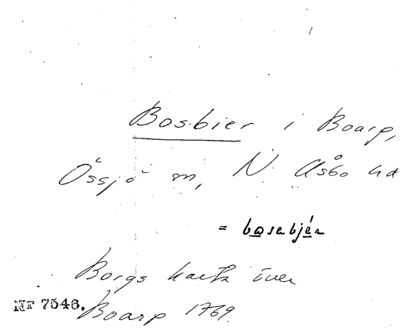 Bosbier i Boarp,
Össjö m, N. Åsbo hd
= bosebjér
Borgs karta över
NF 7546. Boarp 1769.